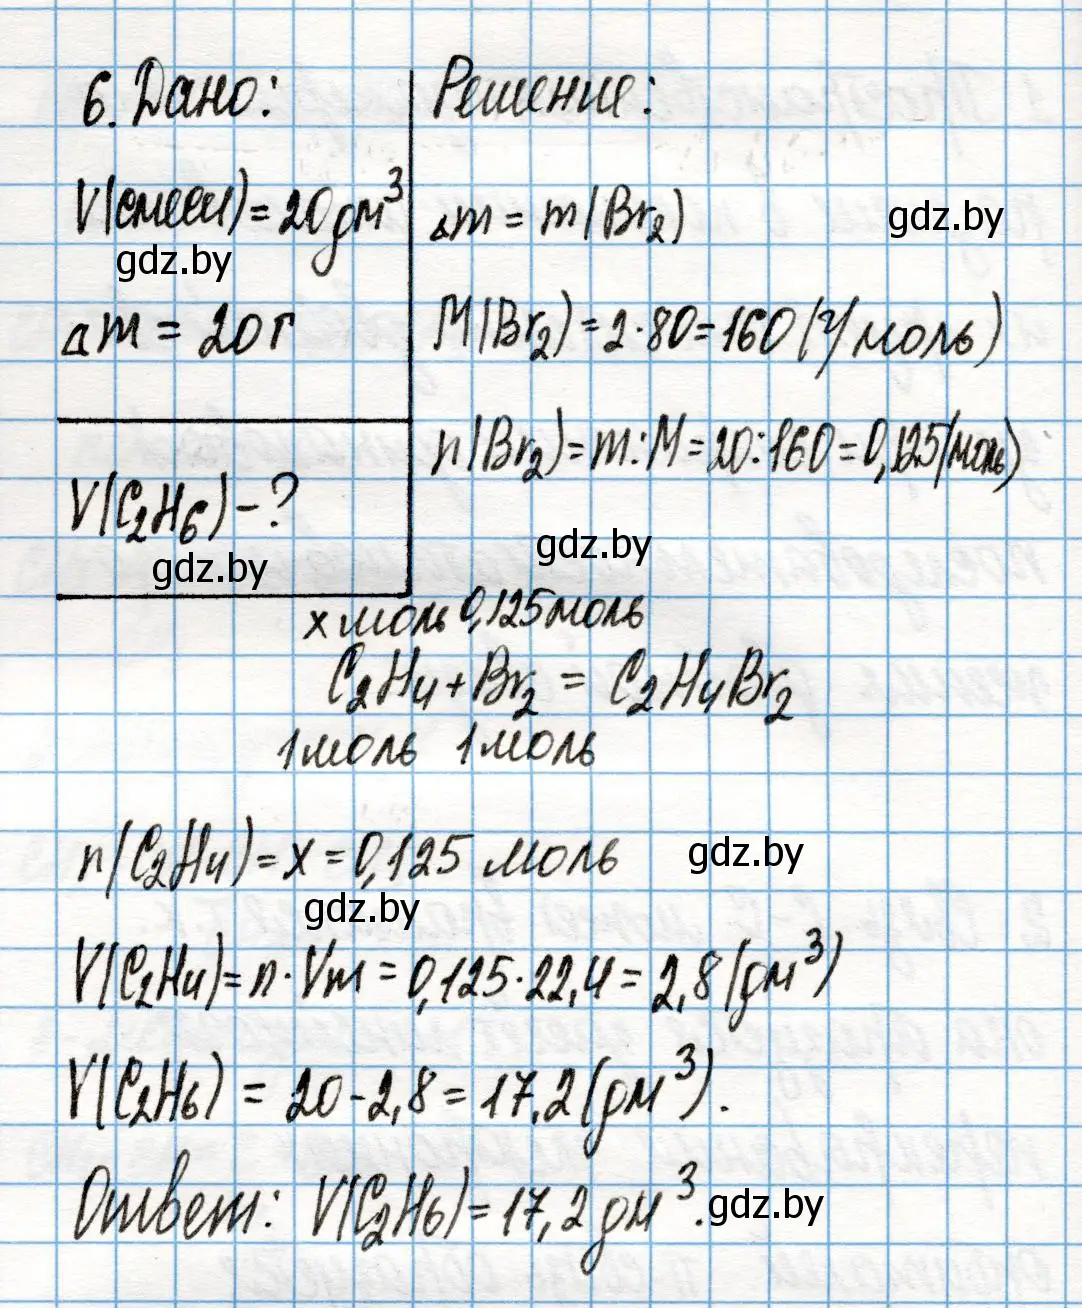 6. Дано:
V(смеси) = 20 дм³
gdz.by
△m = 20 г
V(C₂H₆) - ?
gdz.by
Решение:
△m = m(Br₂)
gdz.by
M(Br₂) = 2·80 = 160 (г/моль)
n(Br₂) = m:M = 20:160 = 0,125 (моль)
gdz.by
x моль 0,125 моль
C₂H₄ + Br₂ = C₂H₄Br₂
1 моль 1 моль
n(C₂H₄) = x = 0,125 моль
gdz.by
gdz.by
V(C₂H₄) = n·Vm = 0,125·22,4 = 2,8 (дм³)
V(C₂H₆) = 20 - 2,8 = 17,2 (дм³).
Ответ: V(C₂H₆) = 17,2 дм³.
gdz.by